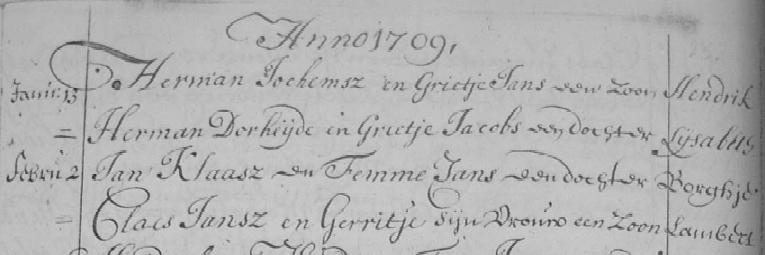 Anno 1709,
Janu: 13 Herman Jochemsz en Grietje Jans een Zoon Hendrik
= Herman Dorheijde en Grietje Jacobs een dochter Lysabeth
Febru 2 Jan Klaasz en Femme Jans een dochter Borghje
= Claes Jansz en Gerritje sijn Vrouw een Zoon Lambert